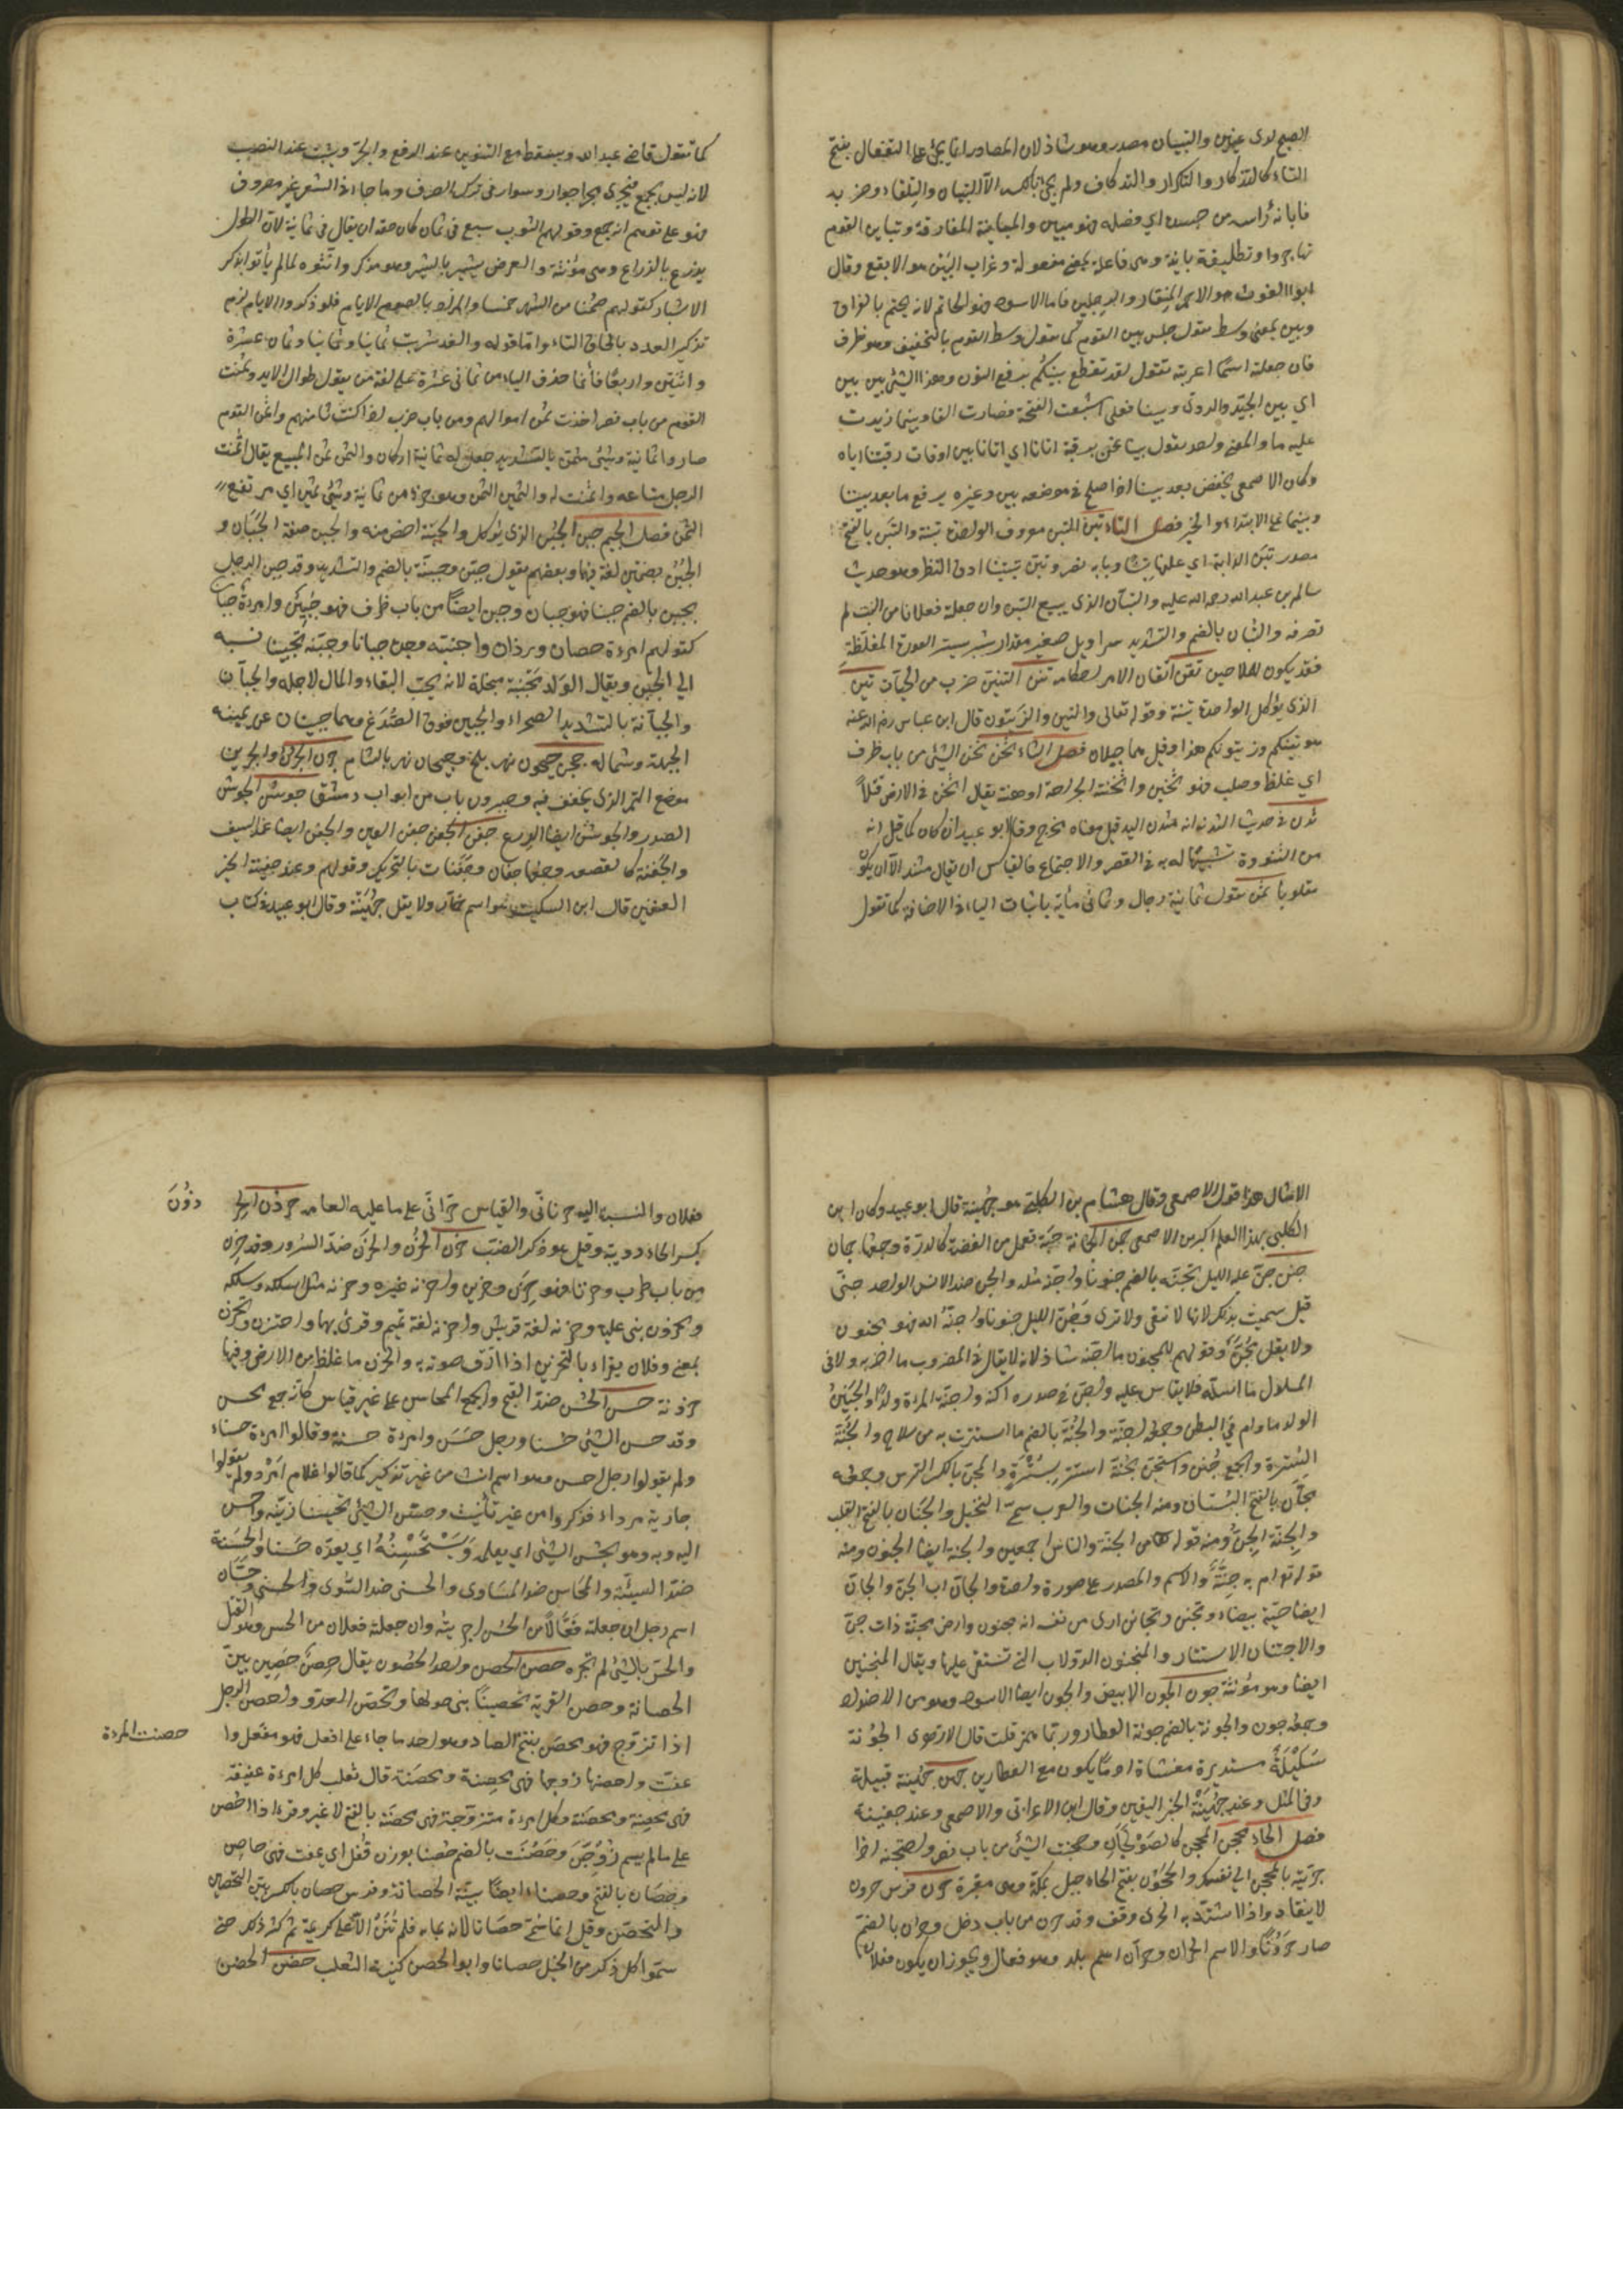 الصبح لذى عينين والتبيان مصدر وهو شاذ لان المصادر انما تجئ على التفعال بفتح
التاء كالتذكار والتكرار والتوكاف ولم يجئ بالكسر الا التبيان والتلقاء وضربه
فابان رأسه من جسده اي فصله فهو مبين والمباينة المفارقة وتباين القوم
تهاجروا وتطليقة باينة وهى فاعلة بمعنى مفعولة وغراب البين هو الابقع وقال
ابو الغوث هو الاحمر المنقار والرجلين فاما الاسود فهو الحاتم لانه يحتم بالفراق
وبين بمعنى وسط تقول جلس بين القوم كما تقول وسط القوم بالتخفيف وهو ظرف
فان جعلته اسما اعربته تقول لقد تقطع بينكم برفع النون وهذا الشئ بين بين
اي بين الجيد والردئ وبينا فعلى اشبعت الفتحة فصارت الفا وبينما زيدت
عليه ما والمعنى واحد تقول بينا نحن نرقبه اتانا اي اتانا بين اوقات رقبتنا اياه
وكان الاصمعى يخفض بعد بينا اذا صلح فى موضعه بين وغيره يرفع ما بعد بينا
وبينما على الابتداء والخبر فصل التاء تبن التبن معروف الواحدة تبنة والتبن بالفتح
مصدر تبن الدابة اي علفها تبنا وبابه ضرب وتبن تبينا ادق النظر وهو حديث
سالم بن عبد الله رحمة الله عليه والتبان الذى يبيع التبن وان جعلته فعلانا من التب لم
تصرفه والتبان بالضم والتشديد سراويل صغير مقدار شبر يستر العورة المغلظة
فقد يكون للملاحين تقن اتقان الامر احكامه تنن التنين ضرب من الحيات تين
الذى يؤكل الواحدة تينة وقوله تعالى والتين والزيتون قال ابن عباس رضى الله عنه
هو تينكم وزيتونكم هذا وقيل هما جبلان فصل الثاء ثخن ثخن الشئ من باب ظرف
اي غلظ وصلب فهو ثخين واثخنته الجراحة اوهنته يقال اثخن فى الارض قتلاً
ثدن فى حديث ذى الثدية انه مثدن اليد قيل معناه مخرج وقال ابو عبيد ان كان كما قيل انه
من الثندوة تشبيها له به فى القصر والاجتماع فالقياس ان يقال مثند الا ان يكون
مقلوبا ثمن تقول ثمانية رجال وثمانى مائة باثبات الياء فى الاضافة كما تقول
كما تقول قاضى عبد الله ويسقط مع التنوين عند الرفع والجر ويثبت عند النصب
لانه ليس بجمع فيجرى مجرا جوار وسوار فى ترك الصرف وما جاء فى الشعر غير مصروف
فهو على توهم انه جمع وقولهم الثوب سبع فى ثمان كان حقه ان يقال فى ثمانية لان الطول
يذرع بالذراع وهى مؤنثة والعرض يشبر بالشبر وهو مذكر وانثوه لما لم يأتوا بذكر
الاشبار كقولهم صمنا من الشهر خمسا والمراد بالصوم الايام فلو ذكروا الايام لزم
تذكير العدد بالحاق التاء واما قوله ولقد شربت ثمانيا وثمانيا وثمان عشرة
واثنتين واربعا فانما حذف الياء من ثمانى عشرة على لغة من يقول طوال الايد وثمنت
القوم من باب نصر اخذت ثمن اموالهم ومن باب ضرب اذا كنت ثامنهم واثمن القوم
صاروا ثمانية وشئ مثمن بالتشديد جعل له ثمانية اركان والثمن ثمن المبيع يقال اثمنت
الرجل متاعه واثمنت له والثمين الثمن وهو جزء من ثمانية وشئ ثمين اي مرتفع
الثمن فصل الجيم جبن الجبن الذى يؤكل والجبنة اخص منه والجبن صفة الجبان و
الجبن بضمتين لغة فيهما وبعضهم يقول جبن وجبنة بالضم والتشديد وقد جبن الرجل
يجبن بالضم جبنا فهو جبان وجبن ايضا من باب ظرف فهو جبين وامرءة جبان
كقولهم امرءة حصان ورزان واجبنته وجده جبانا وجبنه تجبينا نسبه
الى الجبن ويقال الولد مجبنة مبخلة لانه يحب البقاء والمال لاجله والجبان
والجبانة بالتشديد الصحراء والجبين فوق الصدغ وهما جبينان عن يمينه
الجبهة وشماله جحن جيحون نهر بلخ وجيحان نهر بالشام جرن الجرن والجرين
موضع التمر الذى يجفف فيه وجيرون باب من ابواب دمشق جوشن الجوشن
الصدر والجوشن ايضا الدرع جفن الجفن جفن العين والجفن ايضا غلاف السيف
والجفنة كالقصعة وجمعها جفان وجفنات بالتحريك وقولهم وعند جفينة الخبر
اليقين قال ابن السكيت هو اسم خمار ولا يقل جهينة وقال ابو عبيد فى كتاب
الامثال هذا قول الاصمعى وقال هشام بن الكلبى هو جهينة قال ابو عبيد وكان ابن
الكلبى بهذا العلم اكبر من الاصمعى جمن الجمانة حبة تعمل من الفضة كالدرة وجمعها جمان
جنن جن عليه الليل يجنه بالضم جنونا واجنه مثله والجن ضد الانس الواحد جنى
قيل سميت بذلك لانها لا تتقى ولا ترى وجن الليل جنونا واجنه الله فهو مجنون
ولا يقل مجن وقولهم للمجنون ما اجنه شاذ لانه لا يقال فى المضروب ما اضربه ولا فى
المسلول ما اسله فلا يقاس عليه واجن فى صدره اكنه واجنت المرءة ولدا والجنين
الولد ما دام فى البطن وجمعه اجنة والجنة بالضم ما استترت به من سلاح والجنة
السترة والجمع جنن واستجن بجنة استتر بسترة والمجن بالكسر الترس وجمعه
مجان بالفتح البستان ومنه الجنات والعرب تسمى النخيل والجنان بالفتح القلب
والجنة الجن ومنه قوله تعالى من الجنة والناس اجمعين والجنة ايضا الجنون ومنه
قوله تعالى ام به جنة والاسم والمصدر على صورة واحدة والجان اب الجن والجان
ايضا حية بيضاء وتجنن وتجانن ارى من نفسه انه مجنون وارض مجنة ذات جن
والاجتنان الاستتار والمنجنون الدولاب التى تستقى عليها ويقال المنجنين
ايضا وهو مؤنثة جون الجون الابيض والجون ايضا الاسود وهو من الاضداد
وجمعه جون والجونة بالضم جونة العطار وربما همز قلت قال الازهرى الجونة
سليلة مستديرة مغشاة ادما يكون مع العطارين جهن جهينة قبيلة
وفى المثل وعند جهينة الخبر اليقين وقال ابن الاعرابى والاصمعى وعند جفينة
فصل الحاء حجن المحجن كالصولجان وحجنت الشئ من باب نصر واحتجنه اذا
جذبته بالمحجن الى نفسك والحجون بفتح الحاء جبل بمكة وهى مقبرة حرن فرس حرون
لا ينقاد واذا اشتد به الجرى وقف وقد حرن من باب دخل وحرن بالضم
صار حرونا والاسم الحران وحران اسم بلد وهو فعال ويجوز ان يكون فعلان
فعلان والنسبة اليه حرنانى والقياس حرانى على ما عليه العامة حرذن الحر
ذون
بكسر الحاء دويبة وقيل هو ذكر الضب حزن الحزن والحزن ضد السرور وقد حزن
من باب طرب وحزنا فهو حزن وحزين واحزنه غيره وحزنه مثل اسلكه وسلكه
ومحزون بنى عليه وحزنه لغة قريش واحزنه لغة تميم وقرئ بهما واحتزن وتحزن
بمعنى وفلان يقراء بالتحزين اذا ارق صوته به والحزن ما غلظ من الارض وفيها
حزونة حسن الحسن ضد القبح والجمع المحاسن على غير قياس كانه جمع محسن
وقد حسن الشئ حسنا ورجل حسن وامرءة حسنة وقالوا امرءة حسناء
ولم يقولوا رجل احسن وهو اسم انث من غير تذكير كما قالوا غلام امرد ولم يقولوا
جارية مرداء فذكروا من غير تأنيث وحسن الشئ تحسينا زينه واحسن
اليه وبه وهو يحسن الشئ اي يعلمه ويستحسنه اي يعده حسنا والحسنة
ضد السيئة والمحاسن ضد المساوى والحسنى ضد السوى والحسنى وحسان
اسم رجل ان جعلته فعالا من الحسن اجريته وان جعلته فعلان من الحس وهو القتل
والحس بالشئ لم تجره حصن الحصن واحد الحصون يقال حصن حصين بين
الحصانة وحصن القرية تحصينا بنى حولها وتحصن العدو واحصن الرجل
اذا تزوج فهو محصن بفتح الصاد وهو احد ما جاء على افعل فهو مفعل وا
حصنت المرءة
عفت واحصنها زوجها فهى محصنة ومحصنة قال ثعلب كل امرءة عفيفة
فهى محصنة ومحصنة وكل امرءة متزوجة فهى محصنة بالفتح لا غير وقرء اذا احصن
على ما لم يسم زوجن وحصنت بالضم حصنا بوزن قفل اي عفت فهى حاصن
وحصان بالفتح وحصناء ايضا بينة الحصانة وفرس حصان بالكسر بين التحصين
والتحصن وقيل انما سمى حصانا لانه ضن بمائه فلم ينز الا على كريمة ثم كثر ذلك حتى
سموا كل ذكر من الخيل حصانا وابو الحصين كنية الثعلب حضن الحضن